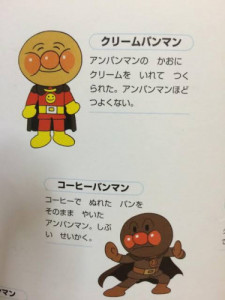 クリームパンマン
アンパンマンの かおに
クリームを いれて つく
られた。アンパンマンほど
つよくない。
コーヒーパンマン
コーヒーで ぬれた パンを
そのまま やいた
アンパンマン。しぶ
い せいかく。
マン